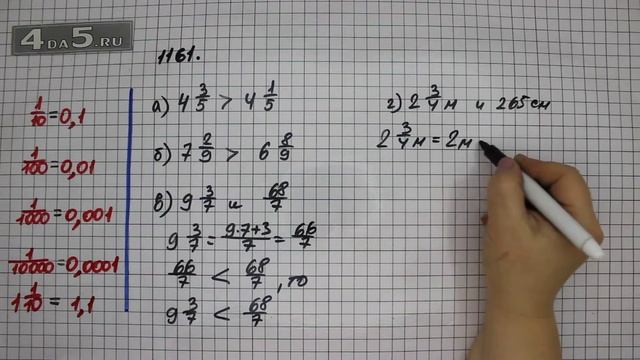 4DA5.RU
1161.
1/10 = 0,1
1/100 = 0,01
1/1000 = 0,001
1/10000 = 0,0001
1 1/10 = 1,1
а) 4 3/5 > 4 1/5
б) 7 2/9 > 6 8/9
в) 9 3/7 и 68/7
9 3/7 = 9·7+3/7 = 66/7
66/7 < 68/7, то
9 3/7 < 68/7
г) 2 3/4 м и 265 см
2 3/4 м = 2 м